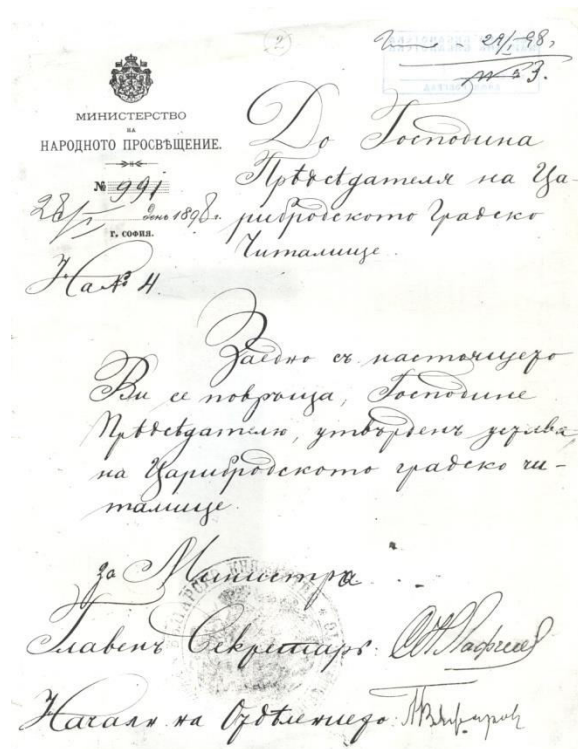 (2)
29/I 98.
№ 3.
МИНИСТЕРСТВО
НА
НАРОДНОТО ПРОСВѢЩЕНИЕ.
№ 991
28/I день 1898 г.
г. СОФИЯ.
На № 4.
До Господина
Прѣдсѣдателя на Ца-
рибродското Градско
Читалище.
Заедно съ настоящето
Ви се повръща, Господине
Прѣдсѣдателю, утвърденъ устава
на Царибродското градско чи-
талище.
за Министра
Главенъ Секретарь:
Началн. на Отдѣлението: